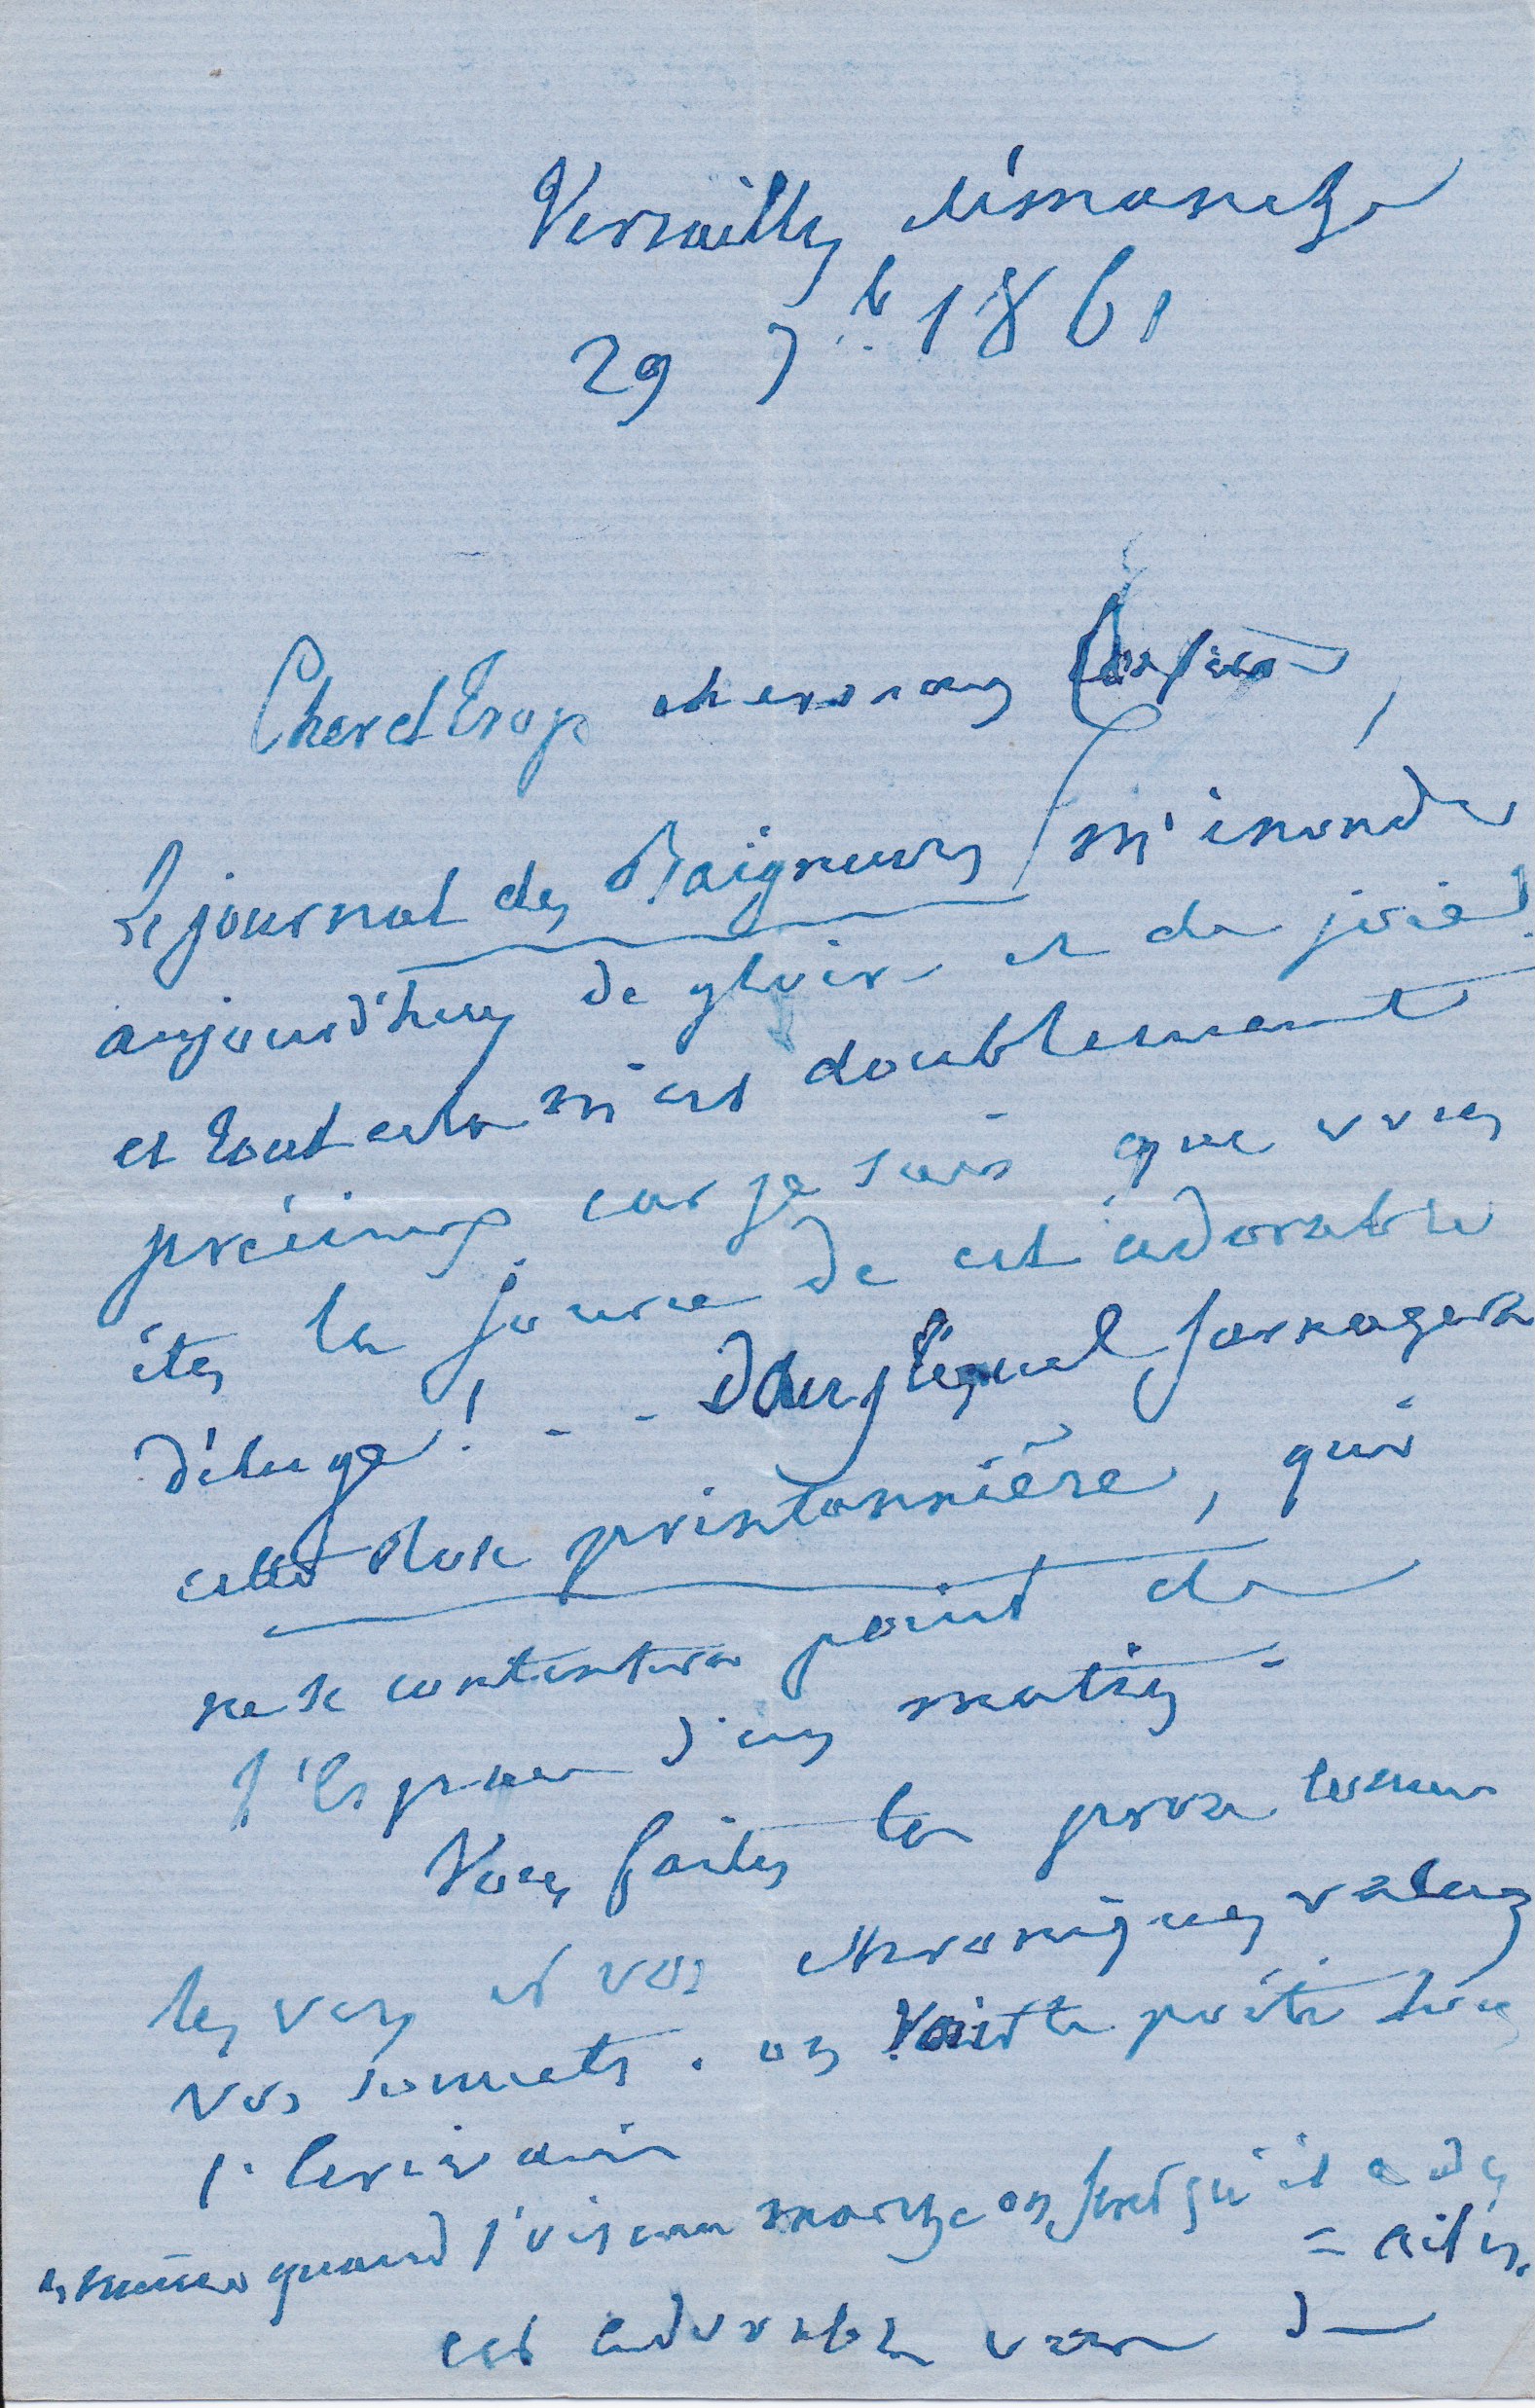 Versailles dimanche
29 7bre 1861
Cher et trop cher
Le journal des Baigneurs m'inonde
aujourd'huy de gloire et de joie!
et tout cela m'est doublement
précieux car je sais que vous
êtes la source de cet adorable
déluge! - - - dans lequel surnagera
cette Rose printannière, qui
ne se contentera point de
l'Espace d'un matin -
Vous faites la prose comme
les vers et vos chroniques valent
vos sonnets. on voit le poëte sous
l'Ecrivain
"même quand l'oiseau marche on sent qu'il a des
= ailes.
est adorable vers d